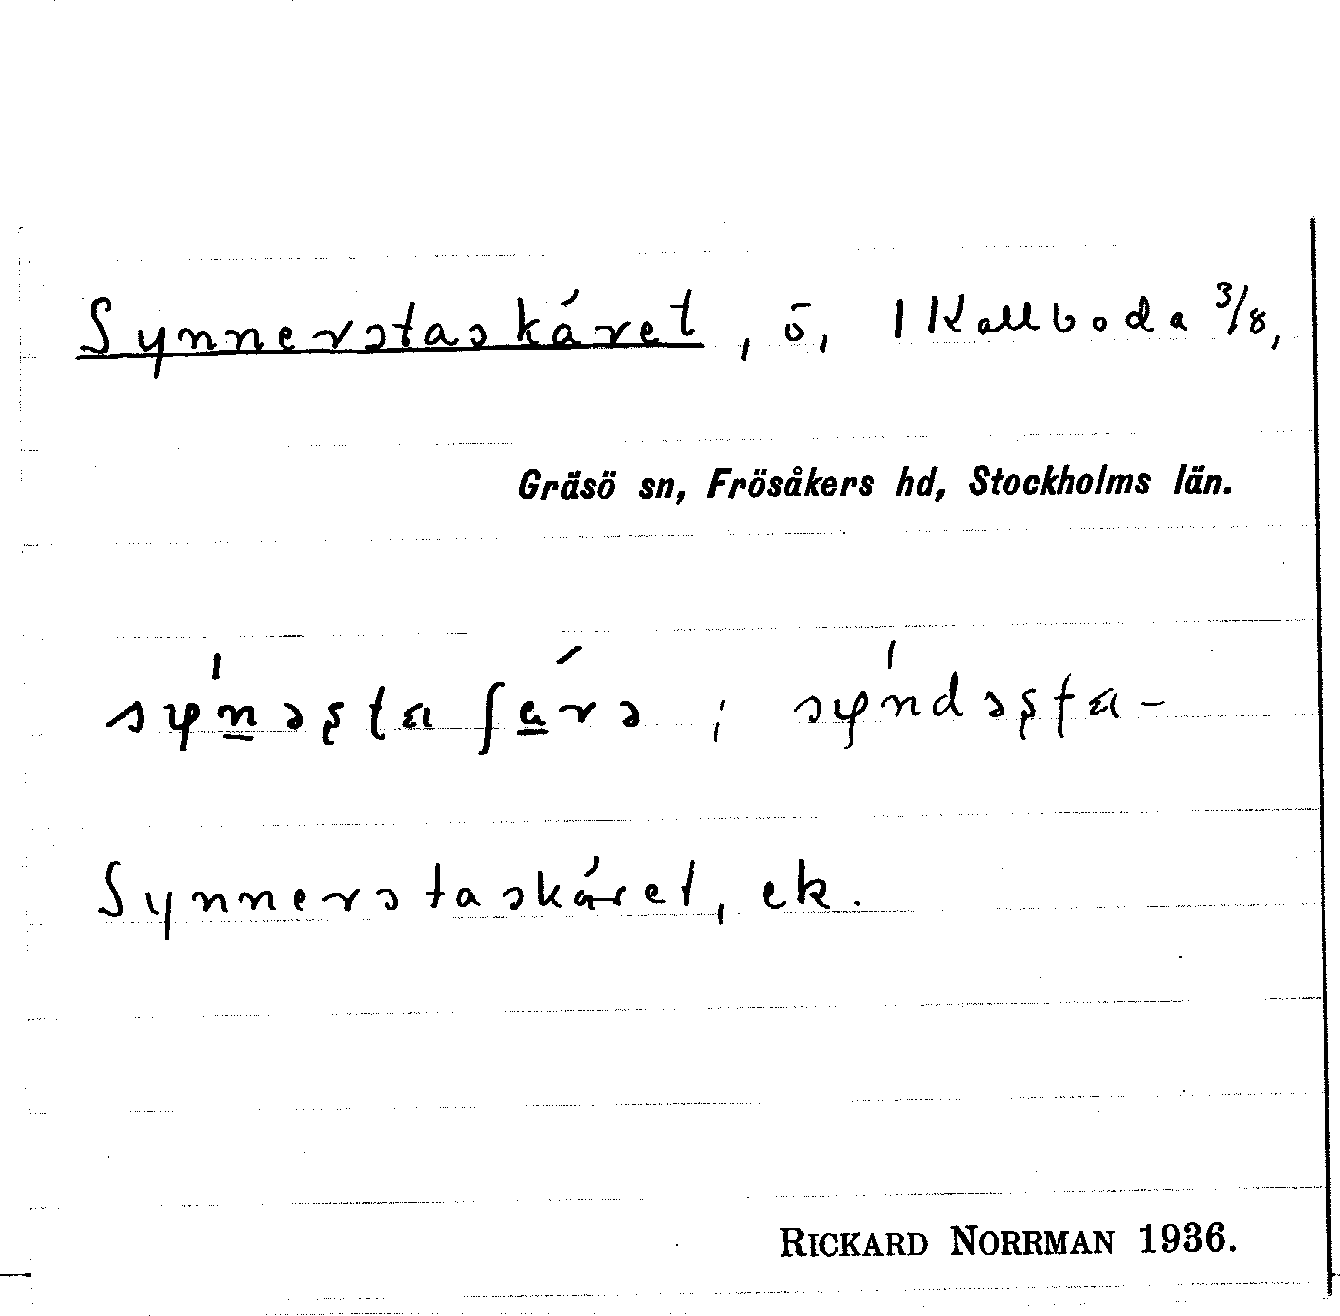 Synnerstaskäret, ö, 1 Kallboda 3/8,
Gräsö sn, Frösåkers hd, Stockholms län.
Synnerstaskäret, ek.
RICKARD NORRMAN 1936.